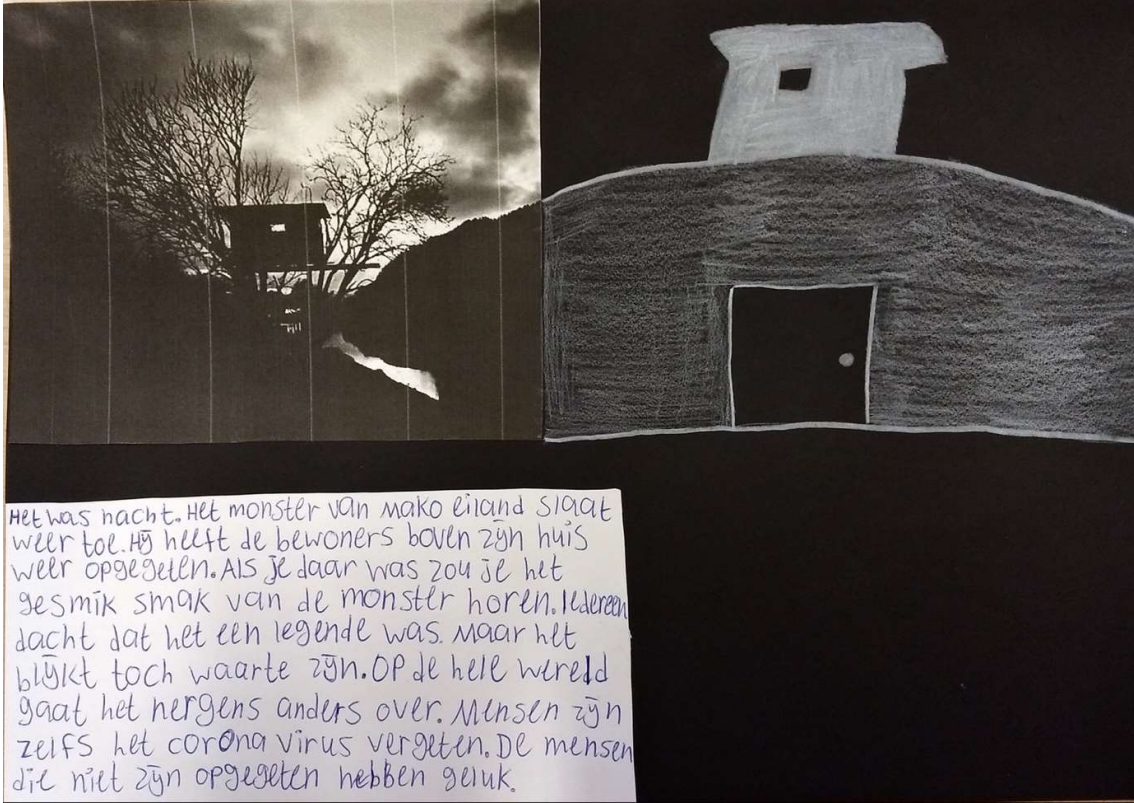 Het was nacht. Het monster van mako eiland slaat
weer toe. Hij heeft de bewoners boven zijn huis
weer opgegeten. Als je daar was zou je het
gesmik smak van de monster horen. Iedereen
dacht dat het een legende was. Maar het
blijkt toch waarte zijn. Op de hele wereld
gaat het nergens anders over. Mensen zijn
zelfs het corona virus vergeten. De mensen
die niet zijn opgegeten hebben geluk.